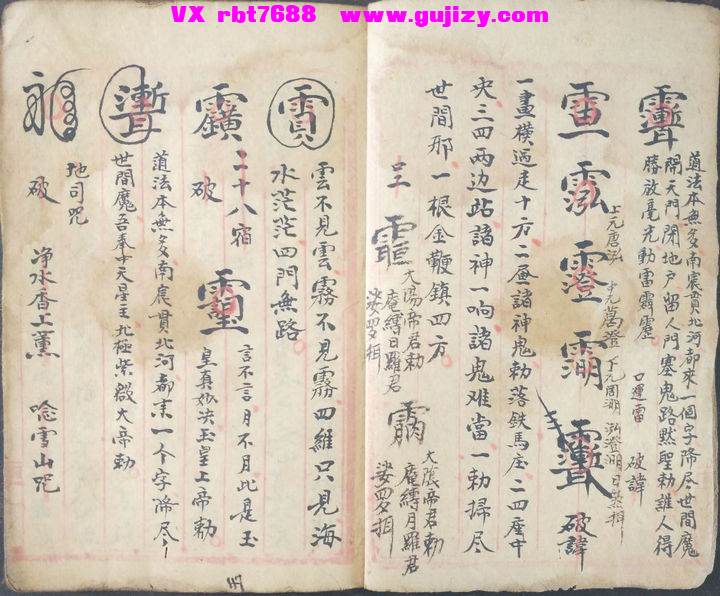 VX rbt7688 www.gujizy.com
道法本無多南宸貫北河都來一個字降尽世間魔
開天門閉地户留人門塞鬼路黙聖勅誰人得
勝放毫光動雷霹靂
口運雷 破諱
上元唐泓 中元萬澄 下元周湖 泓澄湖
破諱
一畫橫過走十方二画諸神鬼勅落鉄馬庄二四座中
央三四兩边站諸神一响諸鬼难當一勅掃尽
世間邪一根金鞭鎮四方
太陽帝君勅
唵縛日羅君
娑婆
太陰帝君勅
唵縛月羅君
娑婆
雲不見雲霧不見霧四維只見海
水茫茫四門無路
二十八宿
言不言月不月此是玉
皇真妙决玉皇上帝勅
破
道法本無多南宸貫北河都來一个字降尽
世間魔吾奉中天星主北極紫微大帝勅
地司咒
破 净水香上薰 唸雪山咒